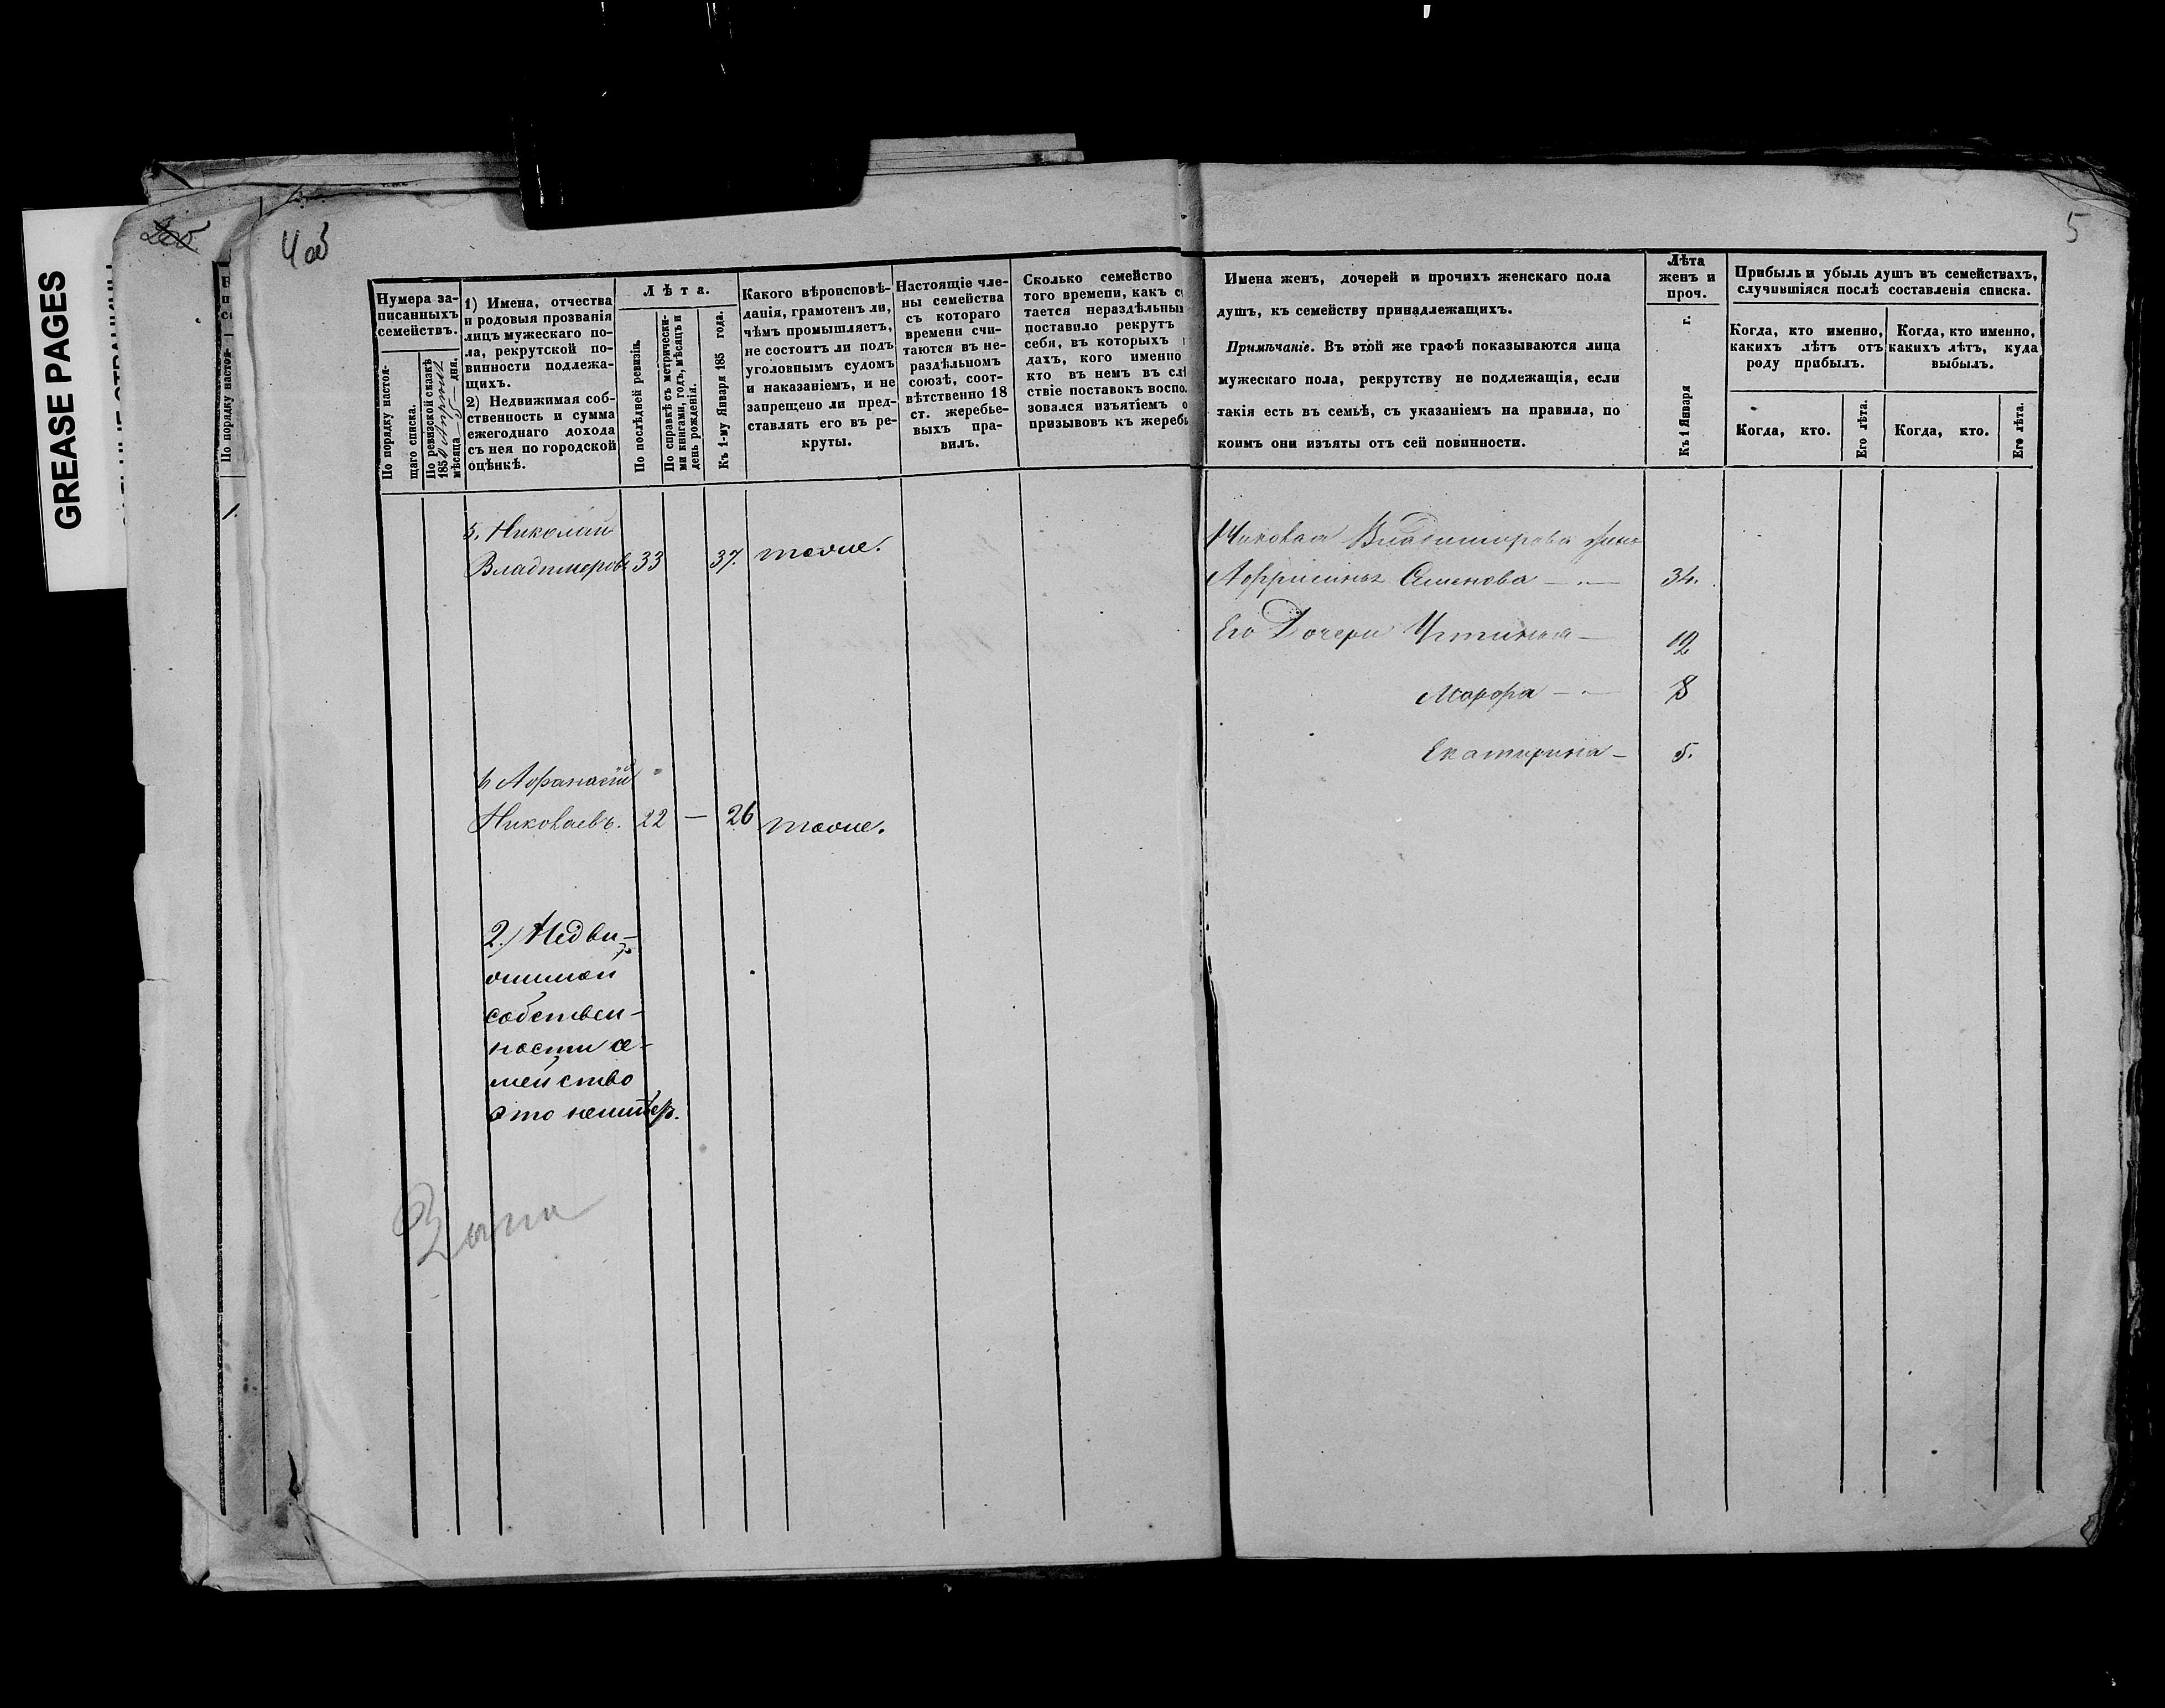 GREASE PAGES
4 об
5
Нумера за-
писанныхъ
семействъ.
По порядку настоя-
щаго списка.
По ревизской сказкѣ
1850 Апрѣля
мѣсяца 5 дня.
1) Имена, отчества
и родовыя прозванія
лицъ мужескаго по-
ла, рекрутской по-
винности подлежа-
щихъ.
2) Недвижимая соб-
ственность и сумма
ежегоднаго дохода
съ нея по городской
оцѣнкѣ.
Лѣта.
По послѣдней ревизіи.
По справкѣ съ метрически-
ми книгами, годъ, мѣсяцъ и
день рожденія.
Къ 1-му Января 185 года.
Какого вѣроисповѣ-
данія, грамотенъ ли,
чѣмъ промышляетъ,
не состоитъ ли подъ
уголовнымъ судомъ
и наказаніемъ, и не
запрещено ли пред-
ставлять его въ ре-
круты.
Настоящіе чле-
ны семейства
съ котораго
времени счи-
таются въ не-
раздѣльномъ
союзѣ, соот-
вѣтственно 18
ст. жеребье-
выхъ пра-
вилъ.
Сколько семейство
того времени, какъ с
тается нераздѣльным
поставило рекрутъ
себя, въ которыхъ
дахъ, кого именно
кто въ немъ въ слѣ
ствіе поставокъ воспо
зовался изъятіемъ о
призывовъ къ жеребь
Имена женъ, дочерей и прочихъ женскаго пола
душъ, къ семейству принадлежащихъ.
Примѣчаніе. Въ этой же графѣ показываются лица
мужескаго пола, рекрутству не подлежащія, если
такія есть въ семьѣ, съ указаніемъ на правила, по
коимъ они изъяты отъ сей повинности.
Лѣта
женъ и
проч.
Къ 1 Января г.
Прибыль и убыль душъ въ семействахъ,
случившіяся послѣ составленія списка.
Когда, кто именно,
какихъ лѣтъ отъ
роду прибылъ.
Когда, кто именно,
какихъ лѣтъ, куда
выбылъ.
Когда, кто.
Его лѣта.
Когда, кто.
Его лѣта.
1.
5. Николай
Владимеровъ 33 37. тоже.
6 Афанасій
Николаевъ. 22 — 26 тоже.
2.) Недви-
жимой
собствен-
ности се-
мейство
это неимѣетъ.
Николая Владимирова жена
Афросинья Семенова — 34.
Его Дочери Устинья — 12
Марфа — 8
Екатерина — 5.